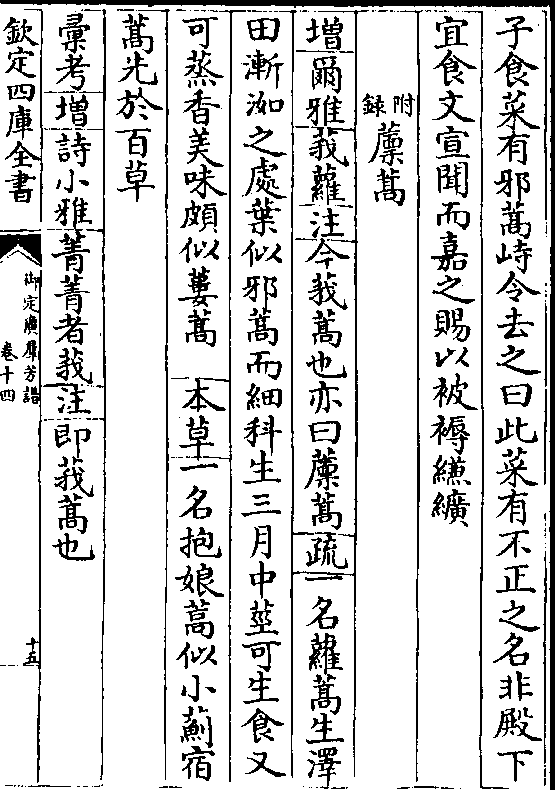 子食菜有邪蒿峙令去之曰此菜有不正之名非殿下
宜食文宣聞而嘉之賜以被褥縑纊
附録
藨蒿
増爾雅莪蘿注今莪蒿也亦曰藨蒿疏一名蘿蒿生澤
田漸洳之處葉似邪蒿而細科生三月中莖可生食又
可蒸香美味頗似蔞蒿 本草一名抱娘蒿似小薊宿
蒿先於百草
彚考増詩小雅菁菁者莪注即莪蒿也
欽定四庫全書
御定廣羣芳譜
卷十四
十五